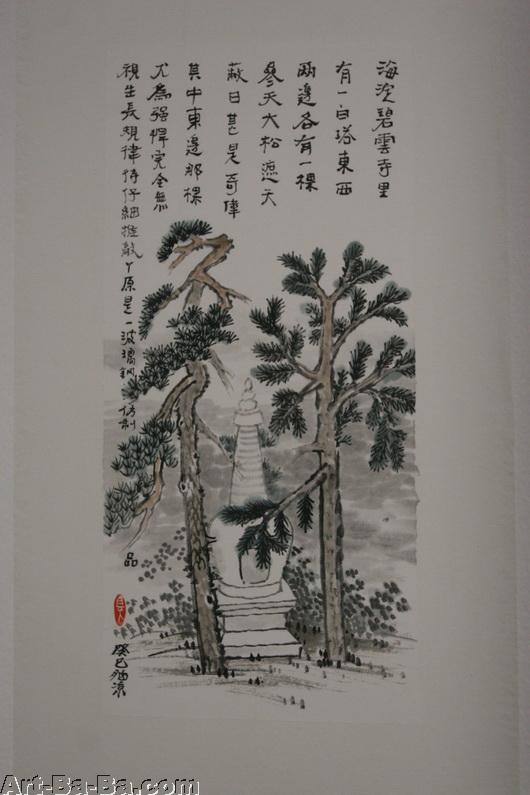 海淀碧雲寺里
有一白塔東西
两邊各有一棵
參天大松遮天
蔽日甚是奇偉
其中東邊那棵
尤為强悍完全無
視生長規律待仔細推敲丫原是一玻璃钢仿制
品
癸巳
Art-Ba-Ba.com